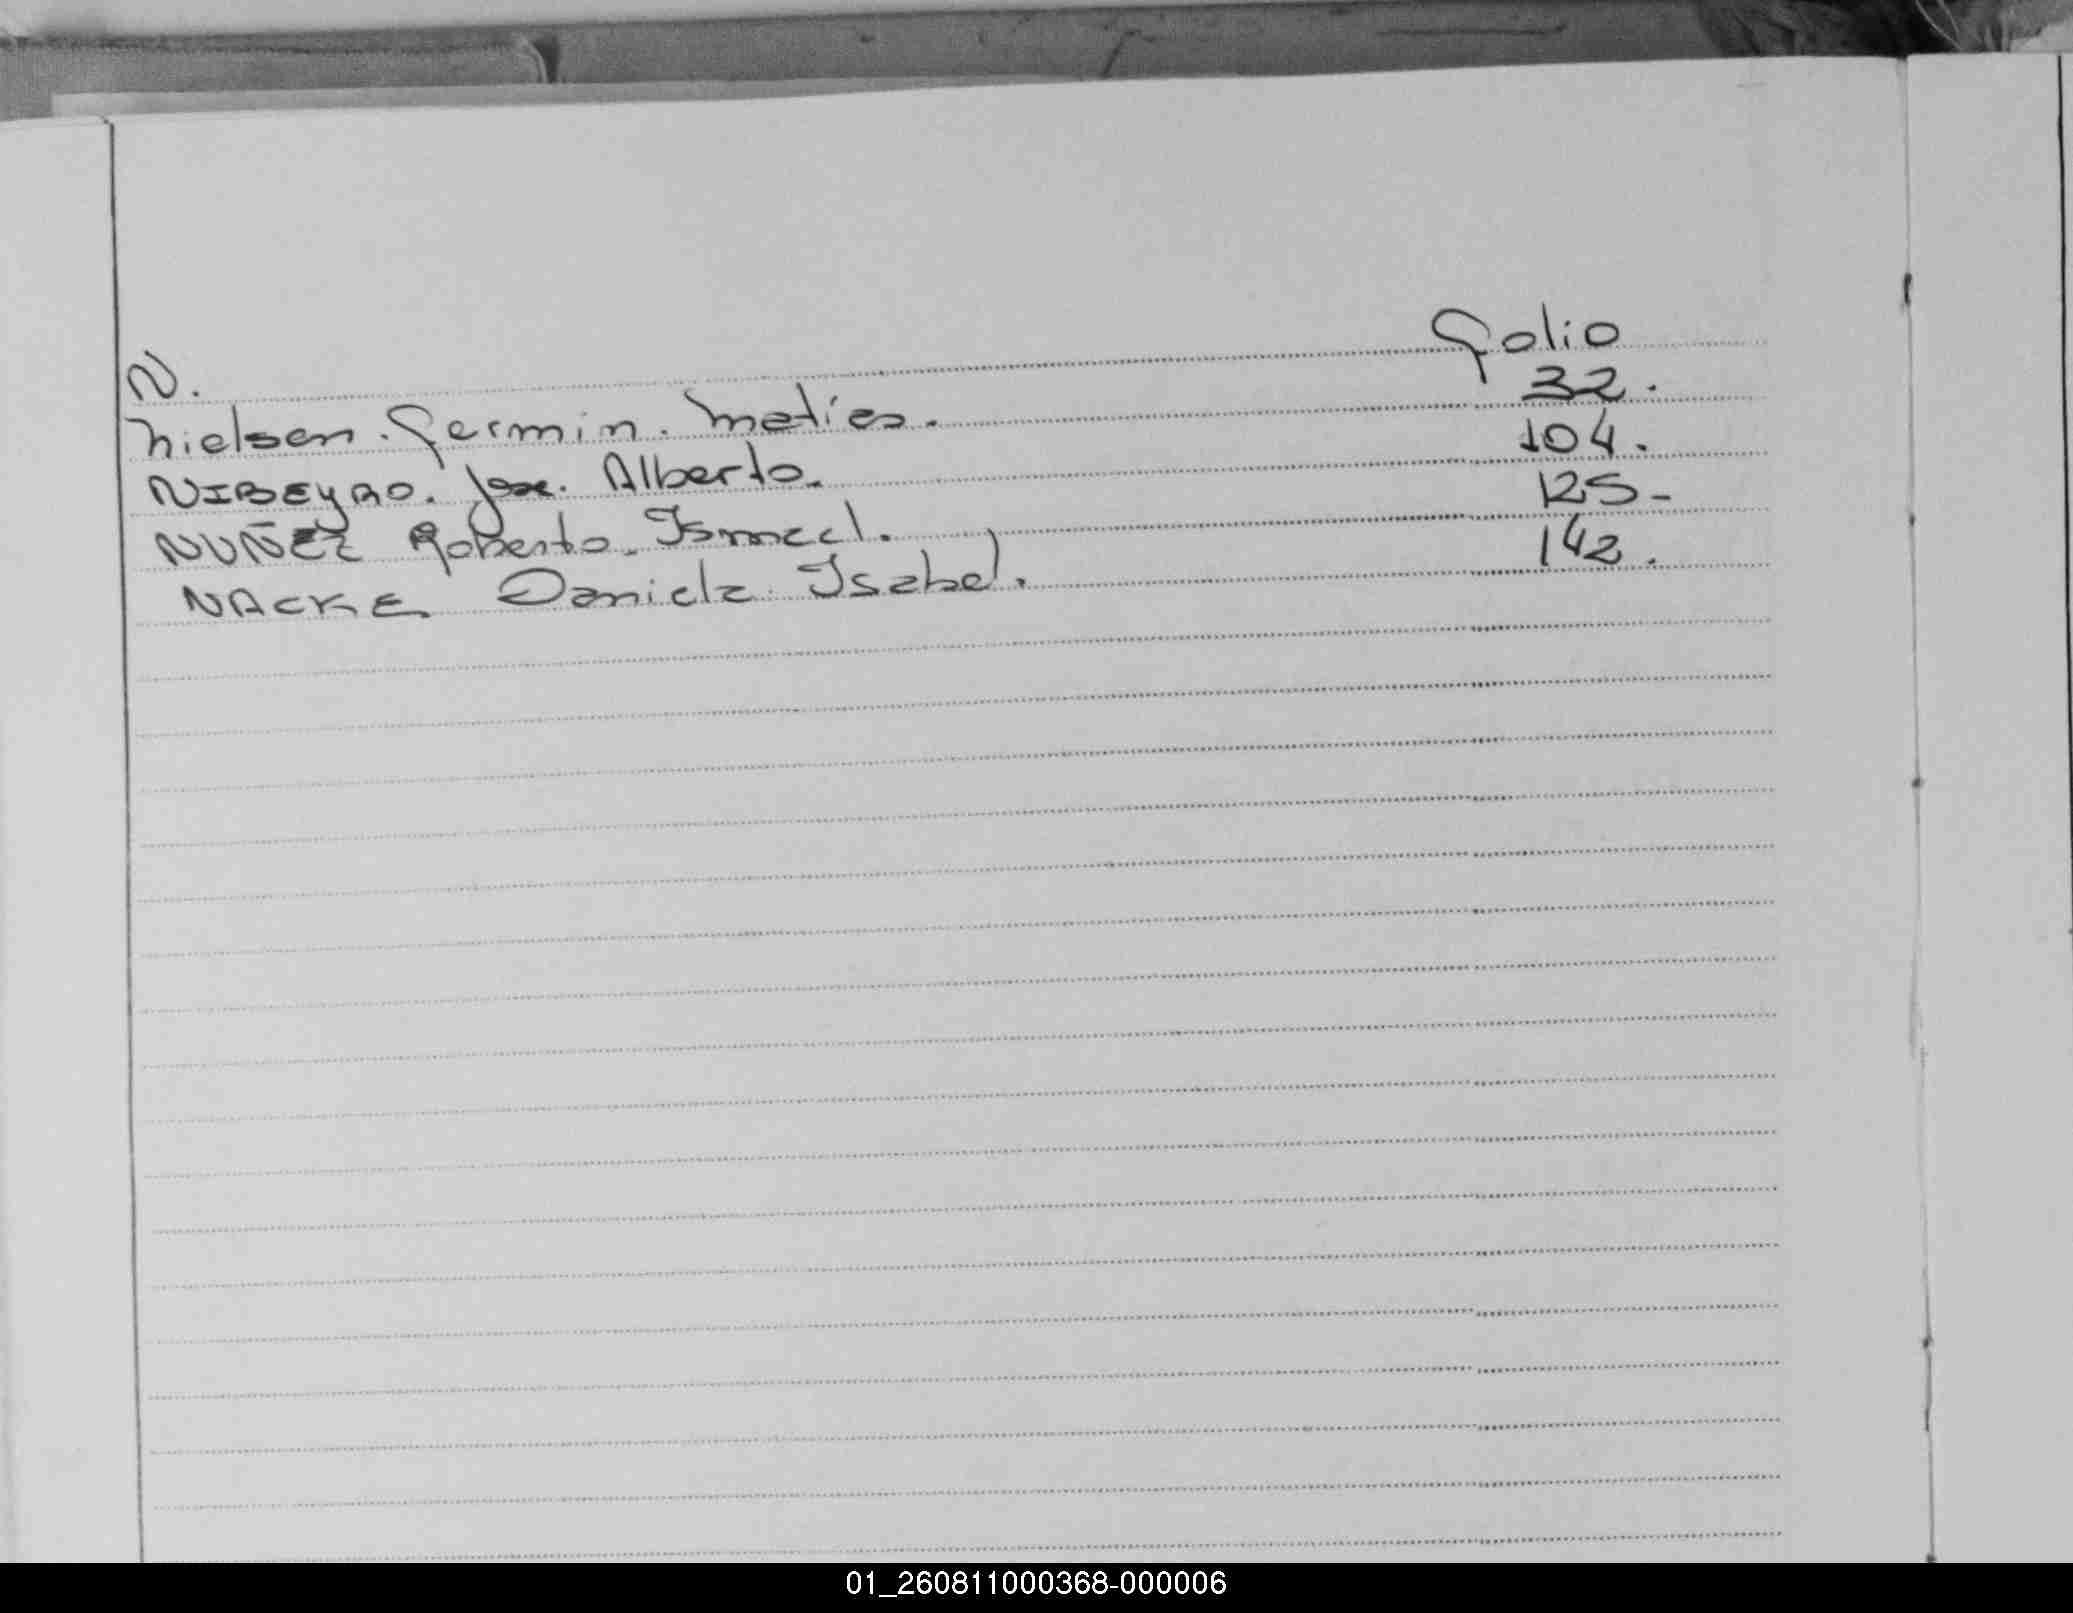 N. Folio
Nielsen. Fermin. Matias. 32.
NIBEYRO. Jose. Alberto. 104.
NUÑEZ Roberto. Ismael. 125-
NACKE Daniela Isabel. 142.
01_260811000368-000006